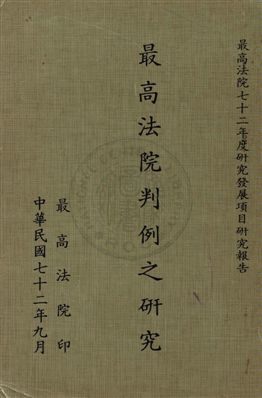 最高法院七十二年度研究發展項目研究報告
最高法院判例之研究
最高法院印
中華民國七十二年九月